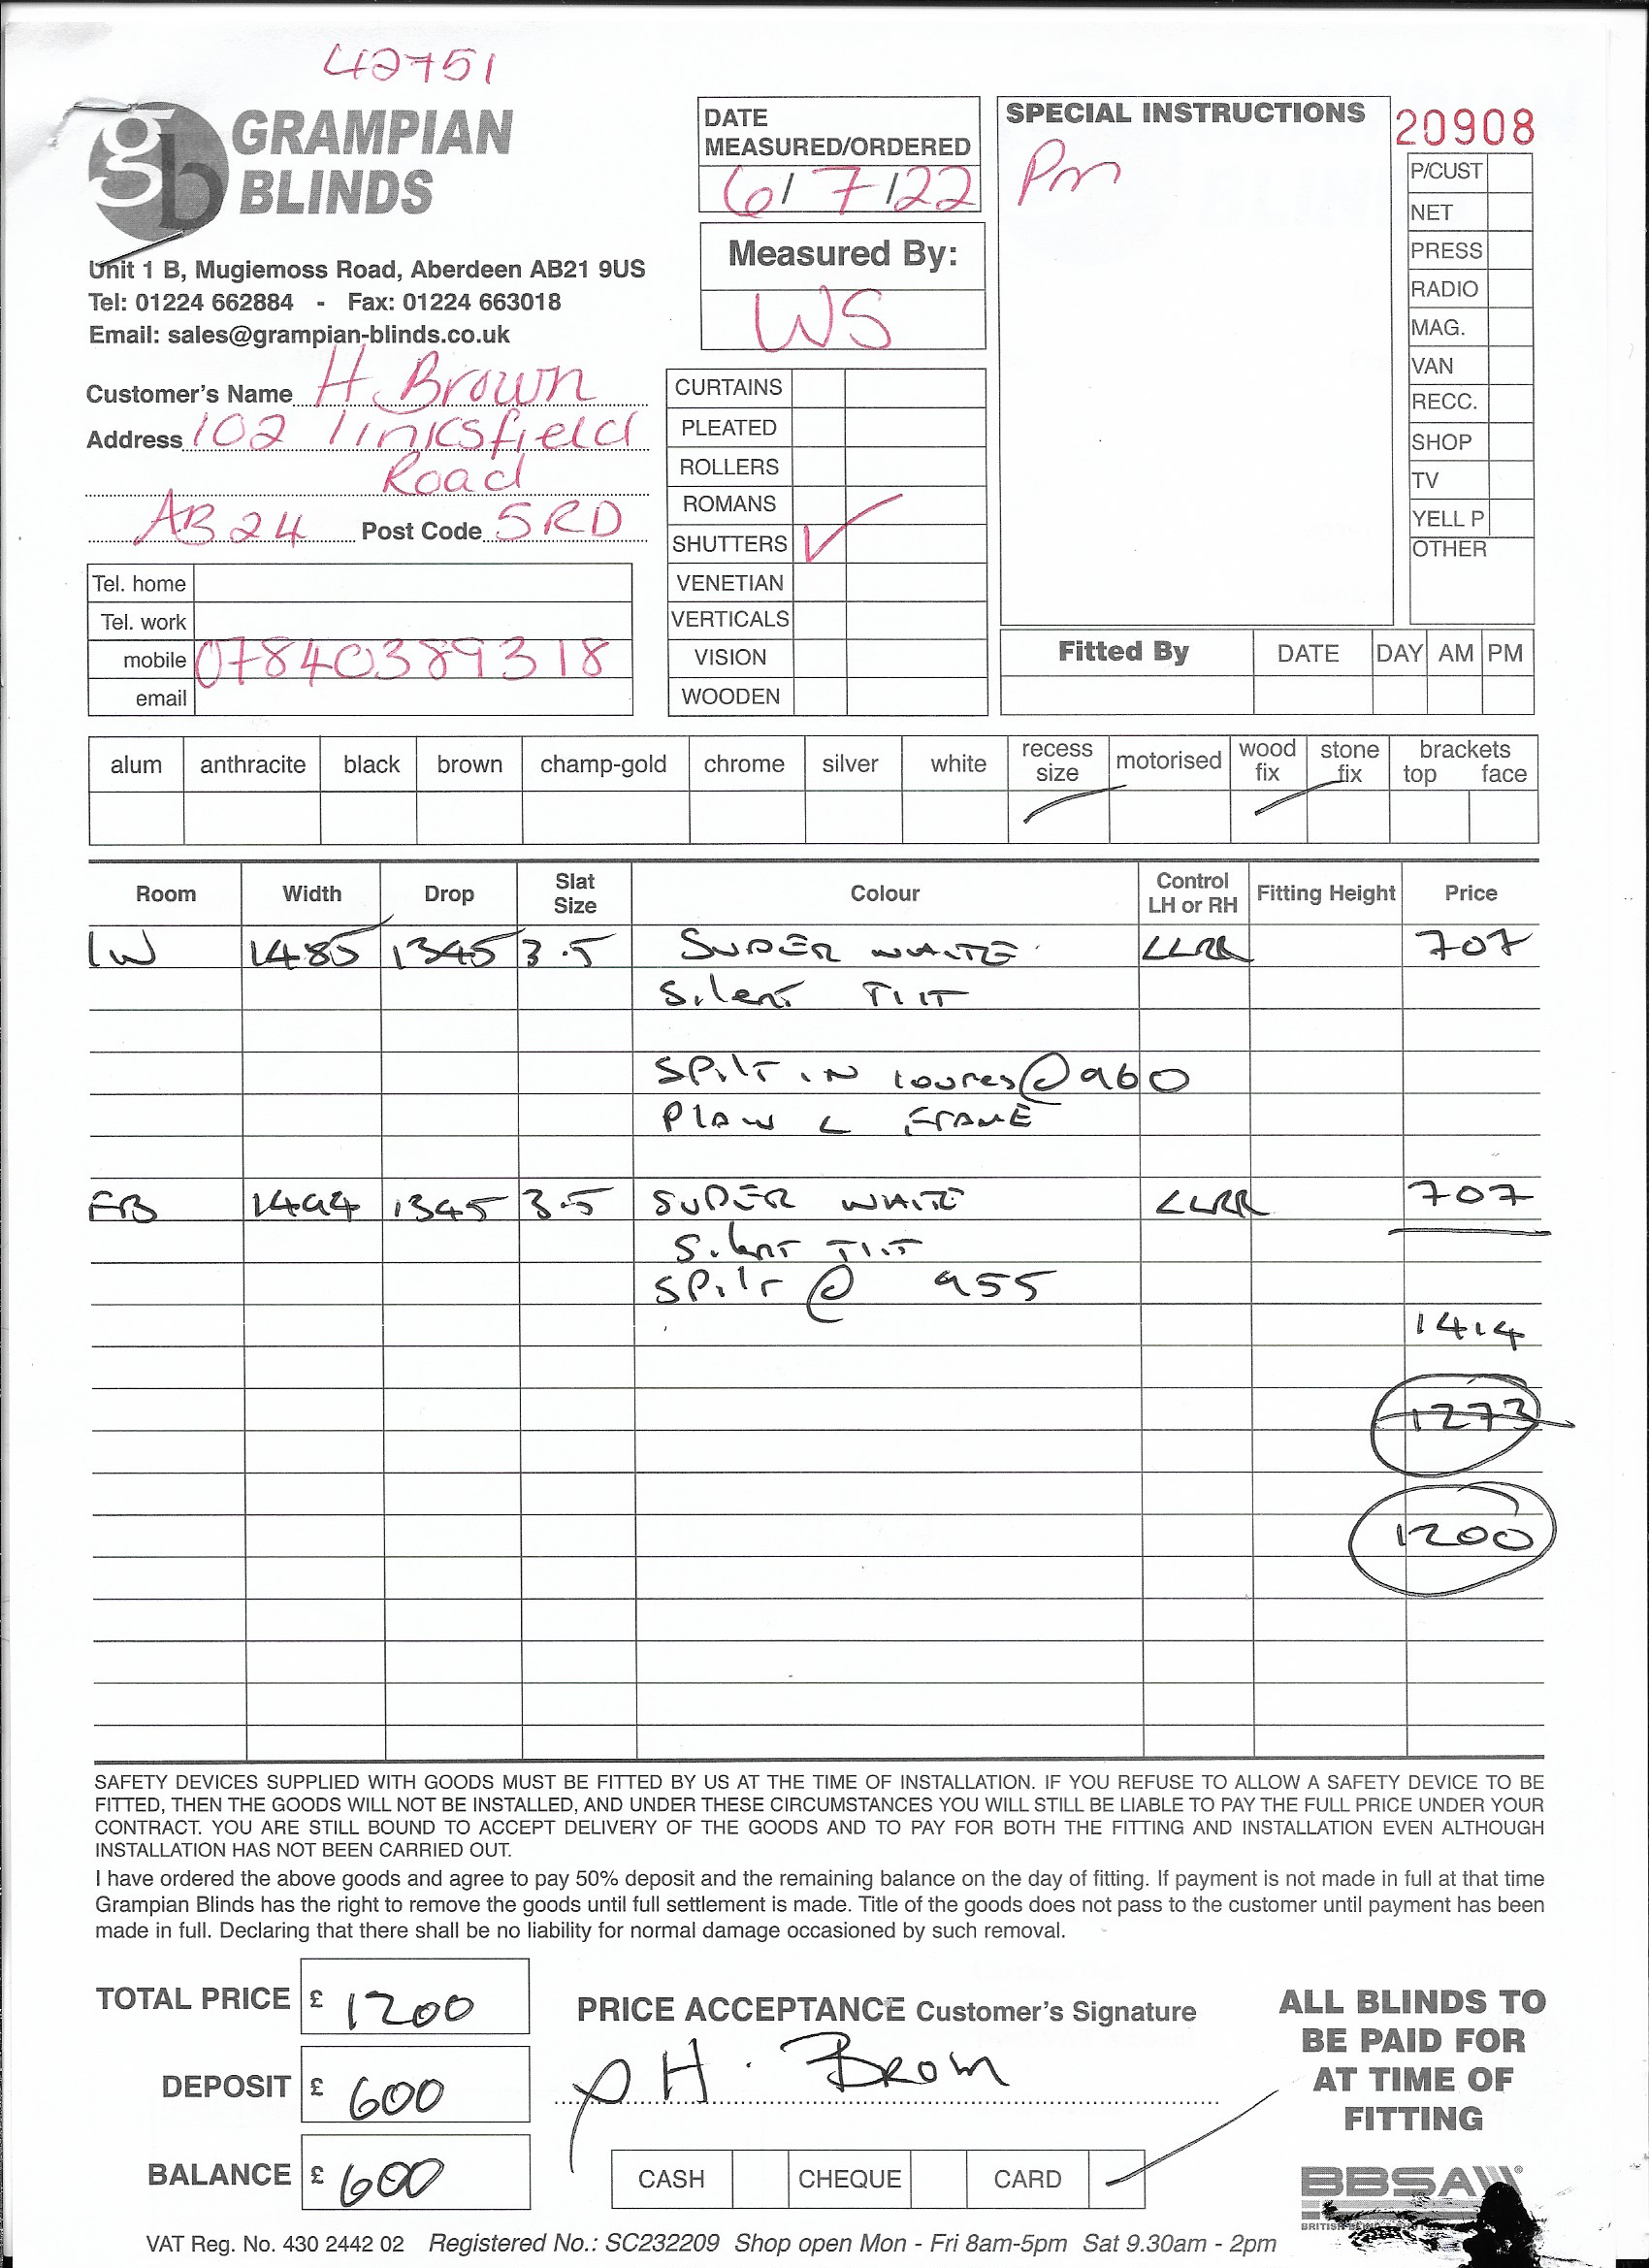 42751
GRAMPIAN
BLINDS
Unit 1 B, Mugiemoss Road, Aberdeen AB21 9US
Tel: 01224 662884 - Fax: 01224 663018
Email: sales@grampian-blinds.co.uk
DATE
MEASURED/ORDERED
6/7/22
Measured By:
WS
SPECIAL INSTRUCTIONS
Pm
20908
P/CUST
NET
PRESS
RADIO
MAG.
VAN
RECC.
SHOP
TV
YELL P
OTHER
Customer's Name H. Brown
Address 102 linksfield
Road
AB24 Post Code 5RD
Tel. home
Tel. work
mobile 07840389318
email
CURTAINS
PLEATED
ROLLERS
ROMANS
SHUTTERS ✓
VENETIAN
VERTICALS
VISION
WOODEN
Fitted By DATE DAY AM PM
alum anthracite black brown champ-gold chrome silver white recess size motorised wood fix stone fix brackets top face
Room Width Drop Slat Size Colour Control LH or RH Fitting Height Price
1485 1345 3.5 SUPER WHITE LLRR 707
Silent TILT
SPilT IN louvres @ 960
PlaIN L FRAME
FB 1494 1345 3.5 SUPER WHITE LLRR 707
Silent TILT
SPilT @ 955
1414
1273
1200
SAFETY DEVICES SUPPLIED WITH GOODS MUST BE FITTED BY US AT THE TIME OF INSTALLATION. IF YOU REFUSE TO ALLOW A SAFETY DEVICE TO BE
FITTED, THEN THE GOODS WILL NOT BE INSTALLED, AND UNDER THESE CIRCUMSTANCES YOU WILL STILL BE LIABLE TO PAY THE FULL PRICE UNDER YOUR
CONTRACT. YOU ARE STILL BOUND TO ACCEPT DELIVERY OF THE GOODS AND TO PAY FOR BOTH THE FITTING AND INSTALLATION EVEN ALTHOUGH
INSTALLATION HAS NOT BEEN CARRIED OUT.
I have ordered the above goods and agree to pay 50% deposit and the remaining balance on the day of fitting. If payment is not made in full at that time
Grampian Blinds has the right to remove the goods until full settlement is made. Title of the goods does not pass to the customer until payment has been
made in full. Declaring that there shall be no liability for normal damage occasioned by such removal.
TOTAL PRICE £ 1200
DEPOSIT £ 600
BALANCE £ 600
PRICE ACCEPTANCE Customer's Signature
H. Brown
CASH CHEQUE CARD
ALL BLINDS TO
BE PAID FOR
AT TIME OF
FITTING
BBSA
VAT Reg. No. 430 2442 02 Registered No.: SC232209 Shop open Mon - Fri 8am-5pm Sat 9.30am - 2pm